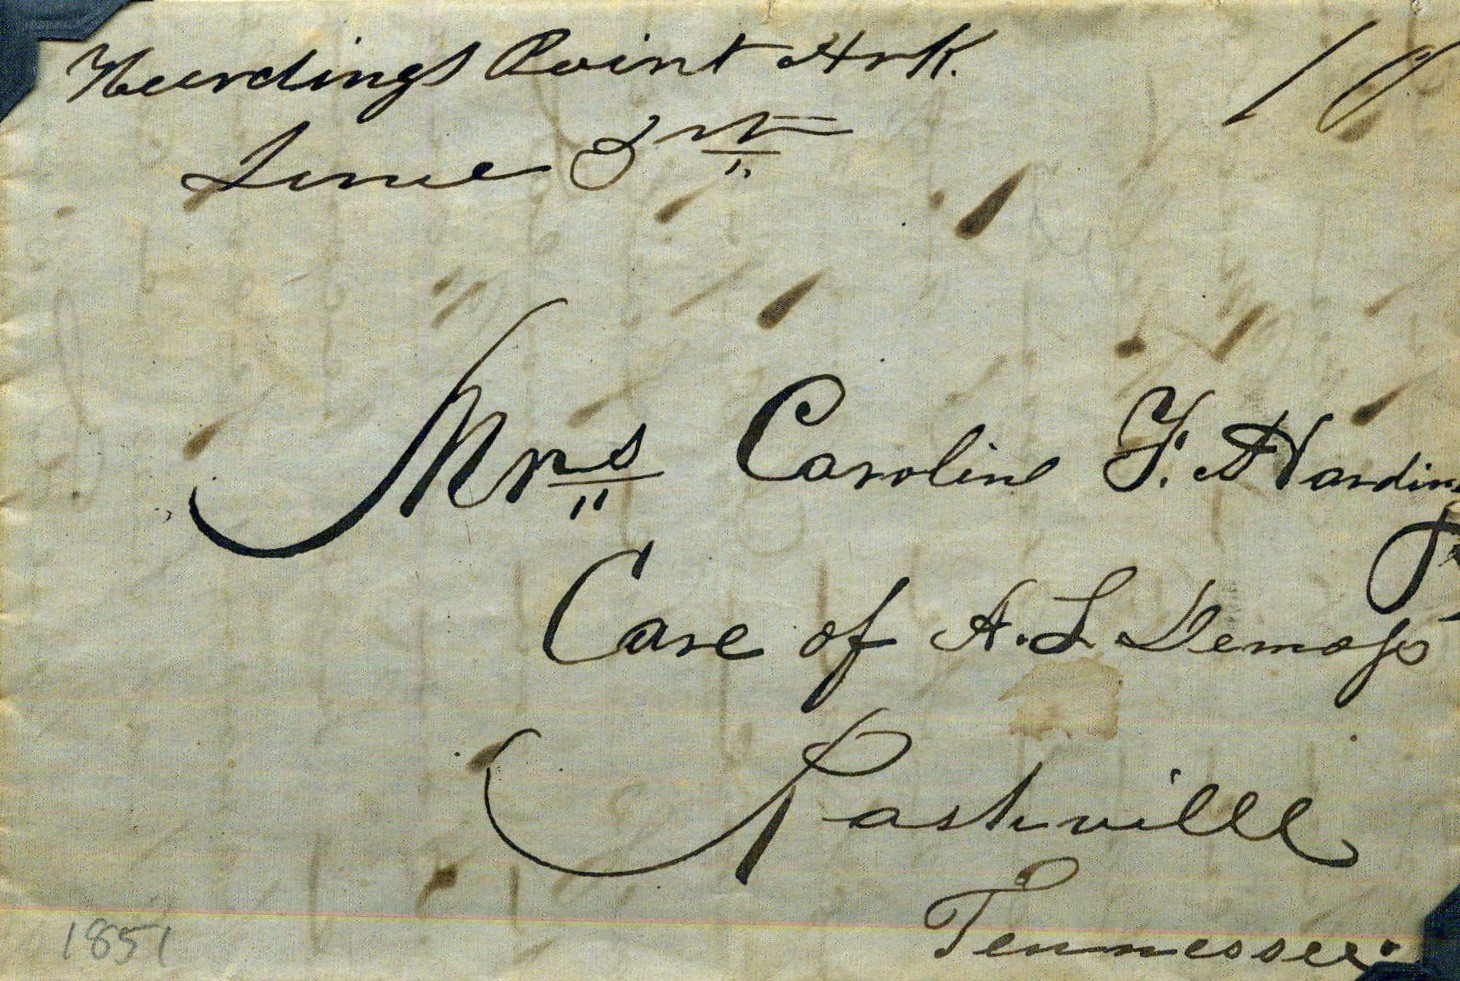 Hardings Point Ark. 10
June
Mrs Caroline F. Harding
Care of A. L. Demoss
Nashville
Tennessee.
1851